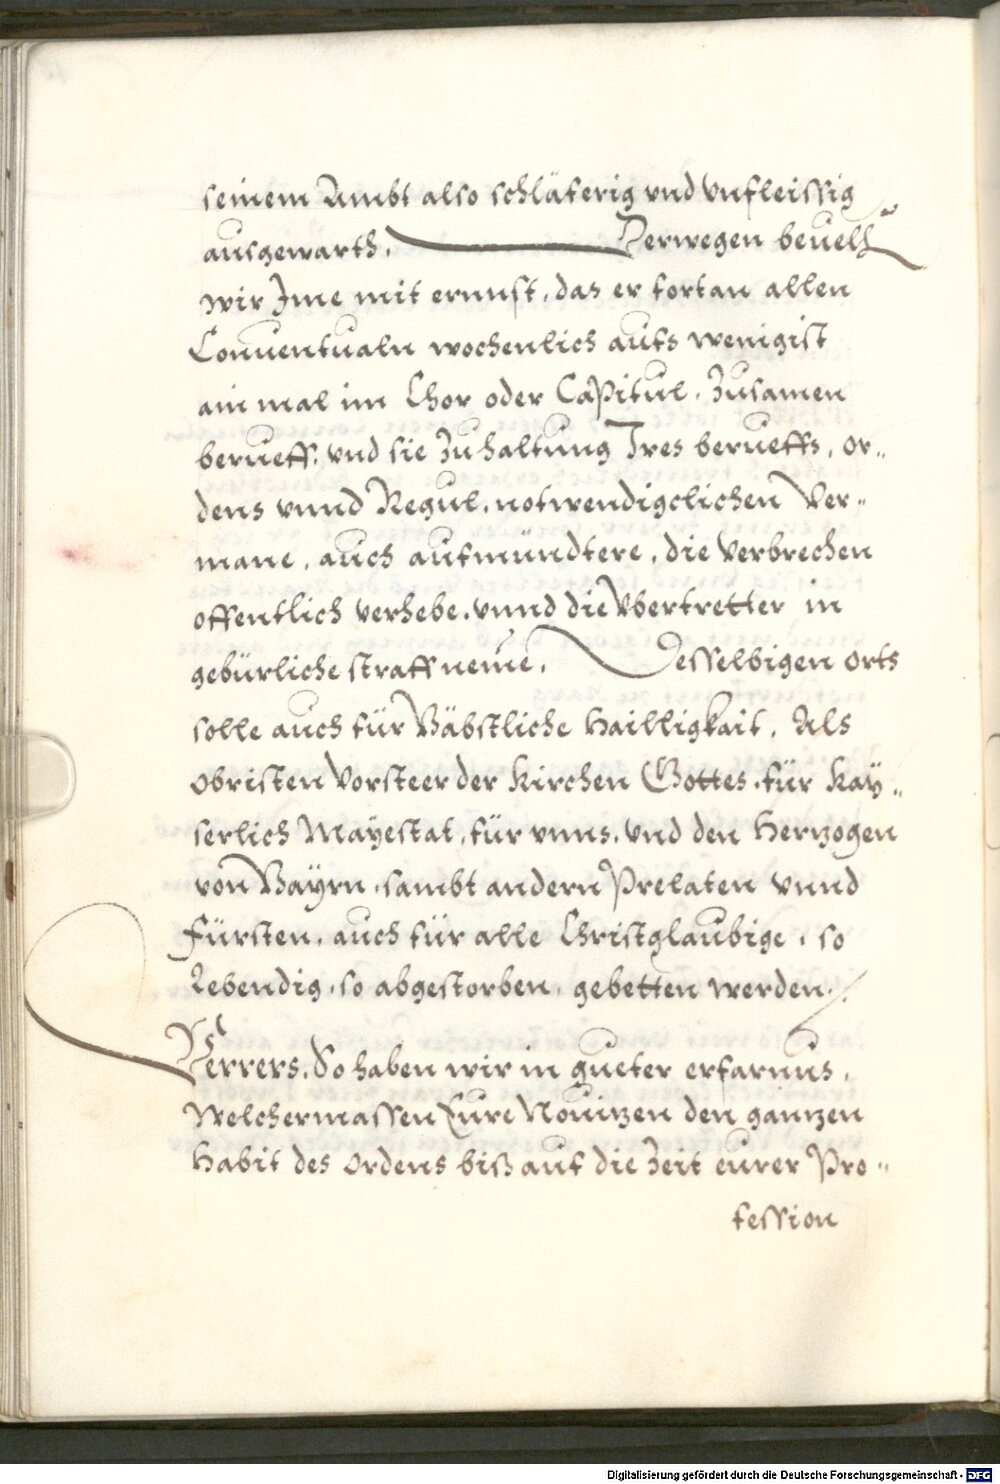 seinem Ambt also schläferig vnd vnfleissig
ausgewarth. Derwegen beuelh
wir Ime mit ernnst, das er fortan allen
Conuentualn wochenlich aufs wenigist
ain mal im Chor oder Capitul, Zusamen
berueff, vnd sie Zu haltung Ires berueffs, or„
dens vnnd Regul, notwendigclichen Ver„
mane, auch aufmündtere, die Verbrechen
offentlich verhebe, vnnd die Vbertretter in
gebürliche straff neme. Desselbigen orts
solle auch für Bäbstliche Hailligkait, Als
Obristen Vorsteer der Kirchen Gottes, für Kay„
serlich Mayestat, für vnns, vnd den Hertzogen
von Bayrn, sambt andern Prelaten vnnd
Fürsten, auch für alle Christglaubige, so
Lebendig, so abgestorben, gebetten werden.
Ferrers, So haben wir in gueter erfarnus,
Welchermassen Eure Nouitzen den gantzen
Habit des Ordens biß auf die Zeit eurer Pro„
fession
Digitalisierung gefördert durch die Deutsche Forschungsgemeinschaft - DFG